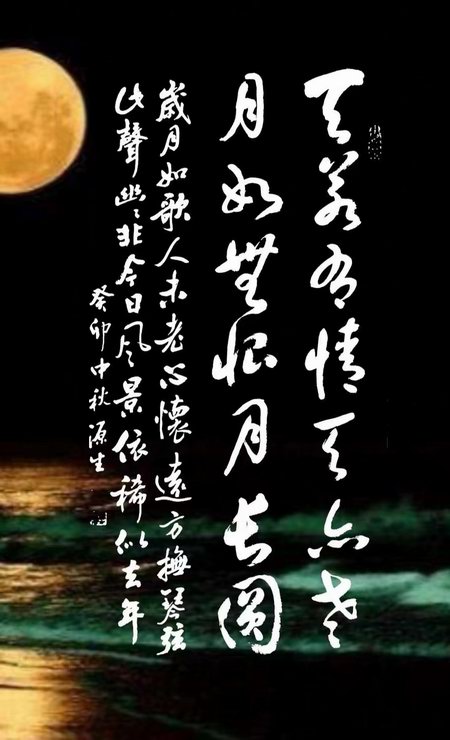 天若有情天亦老
月如無恨月長圓
歲月如歌人未老心懷遠方撫琴弦
此聲幽幽非今日風景依稀似去年
癸卯中秋源生